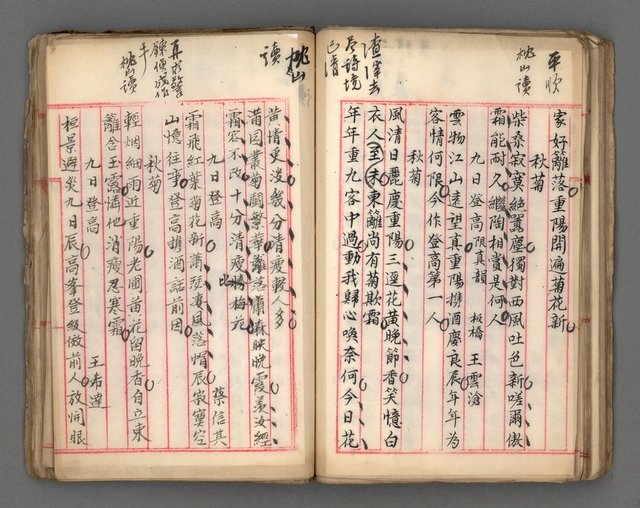 平吹
桃山讀
家好籬落重陽開遍菊花新
秋菊
柴桑寂寞絕囂塵獨對西風吐色新嗟爾傲
霜能耐久繼陶相賞是何人
九日登高限真韻 板橋 王雲滄
雲物江山遠望真重陽攜酒慶良辰年年為
客情何限今作登高第一人
秋菊
風清日麗慶重陽三逕花黃晚節香笑憶白
衣人至未東籬尚有菊欺霜
年年重九客中過動我歸心喚奈何今日花
渣滓去
尽詩境
已清
桃山
讀
黃情更淡幾分清瘦較人多
莆園叢菊鬪繁華籬落蕭森映晚霞羨汝經
霜容不改十分清瘦勝梅花
比
九日登高 蔡信其
霜飛紅葉菊花新蕭瑟淒風落帽辰寂寞空
山憶往事登高攜酒話前因
秋菊
輕烟細雨近重陽老圃黃花留晚香自立東
籬念玉露憐他消瘦忍寒霜
九日登高 王希遠
桓景避災九日辰高峯登級倣前人放開眼
再求警
鍊便成作
手
桃山讀